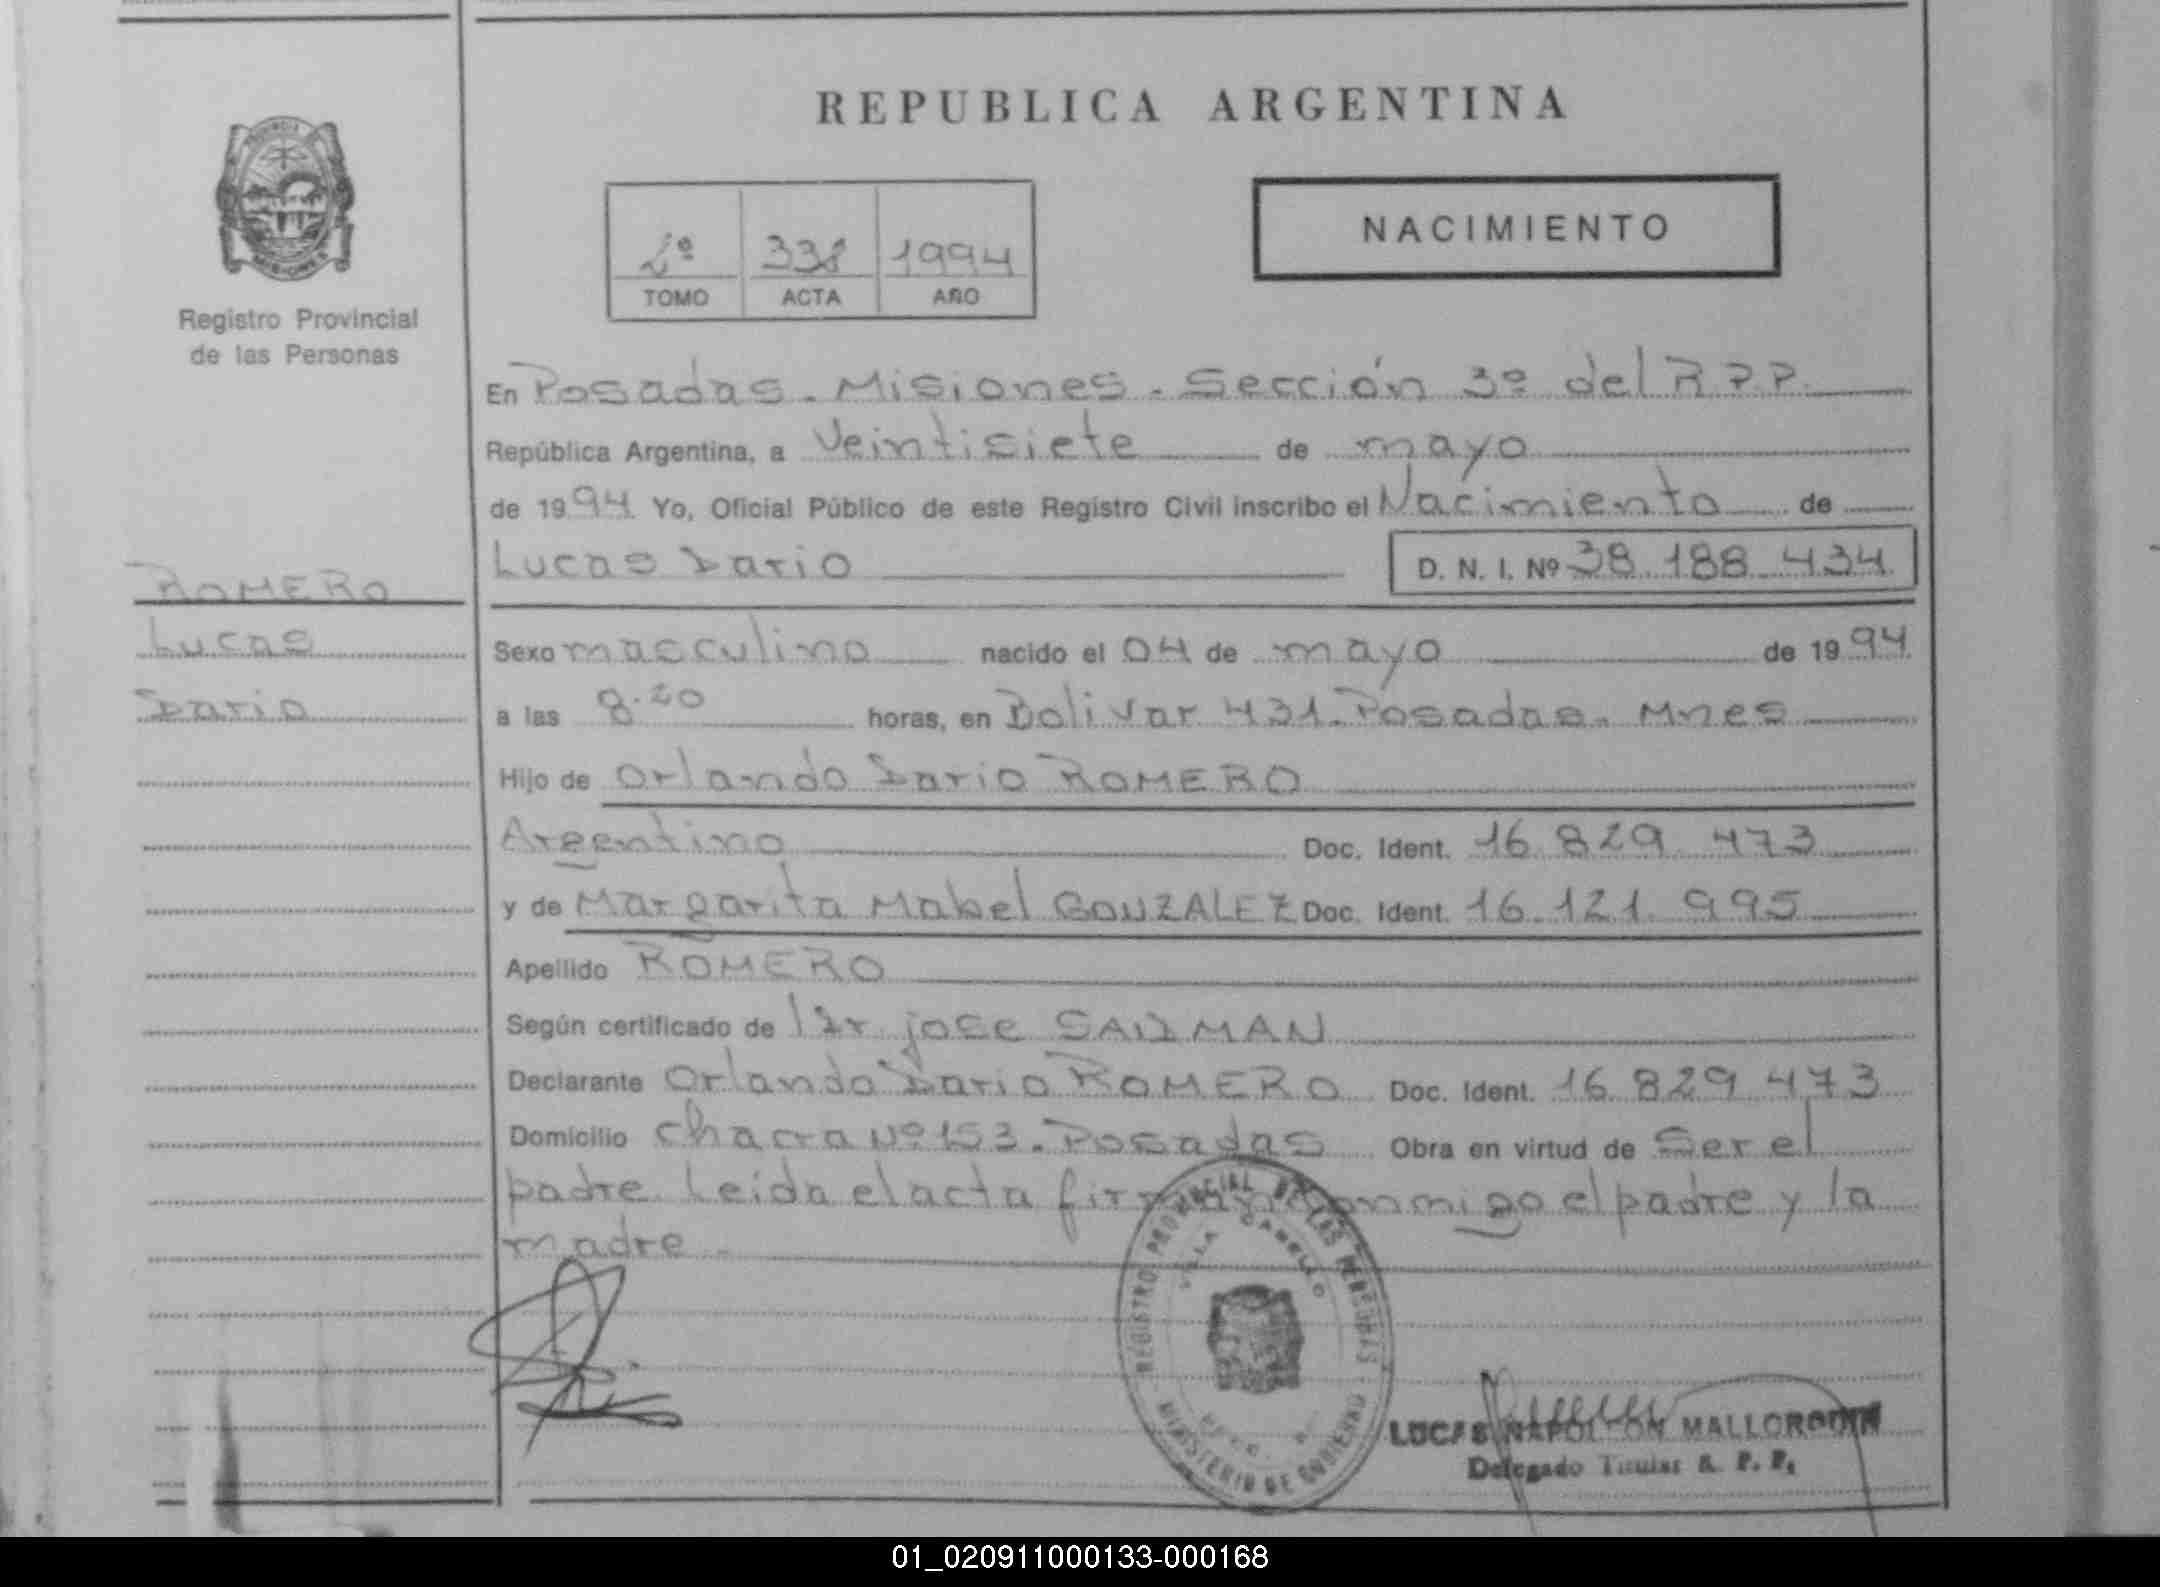 REPUBLICA ARGENTINA
PROVINCIA
MISIONES
Registro Provincial
de las Personas
2º 338 1994
TOMO ACTA AÑO
NACIMIENTO
En Posadas. Misiones. Sección 3º del R.P.P.
República Argentina, a Veintisiete de mayo
de 1994. Yo, Oficial Público de este Registro Civil inscribo el Nacimiento de
Lucas Dario D. N. I. Nº 38.188.434
ROMERO
Lucas
Dario
Sexo masculino nacido el 04 de mayo de 1994.
a las 8.20 horas, en Bolivar 431. Posadas. Mnes
Hijo de Orlando Dario ROMERO
Argentino Doc. Ident. 16.829.473
y de Margarita Mabel GONZALEZ Doc. Ident. 16.121.995
Apellido ROMERO
Según certificado de Dr. jose
Declarante Orlando Dario ROMERO Doc. Ident. 16.829.473
Domicilio chacra Nº 153. Posadas Obra en virtud de Ser el
padre. Leida el acta conmigo el padre y la
madre.
REGISTRO PROVINCIAL DE LAS PERSONAS
VILLA CABELLO
MINISTERIO DE GOBIERNO
LUCAS NAPOLEON MALLORQUIN
Delegado Titular R. P. P.
01_020911000133-000168